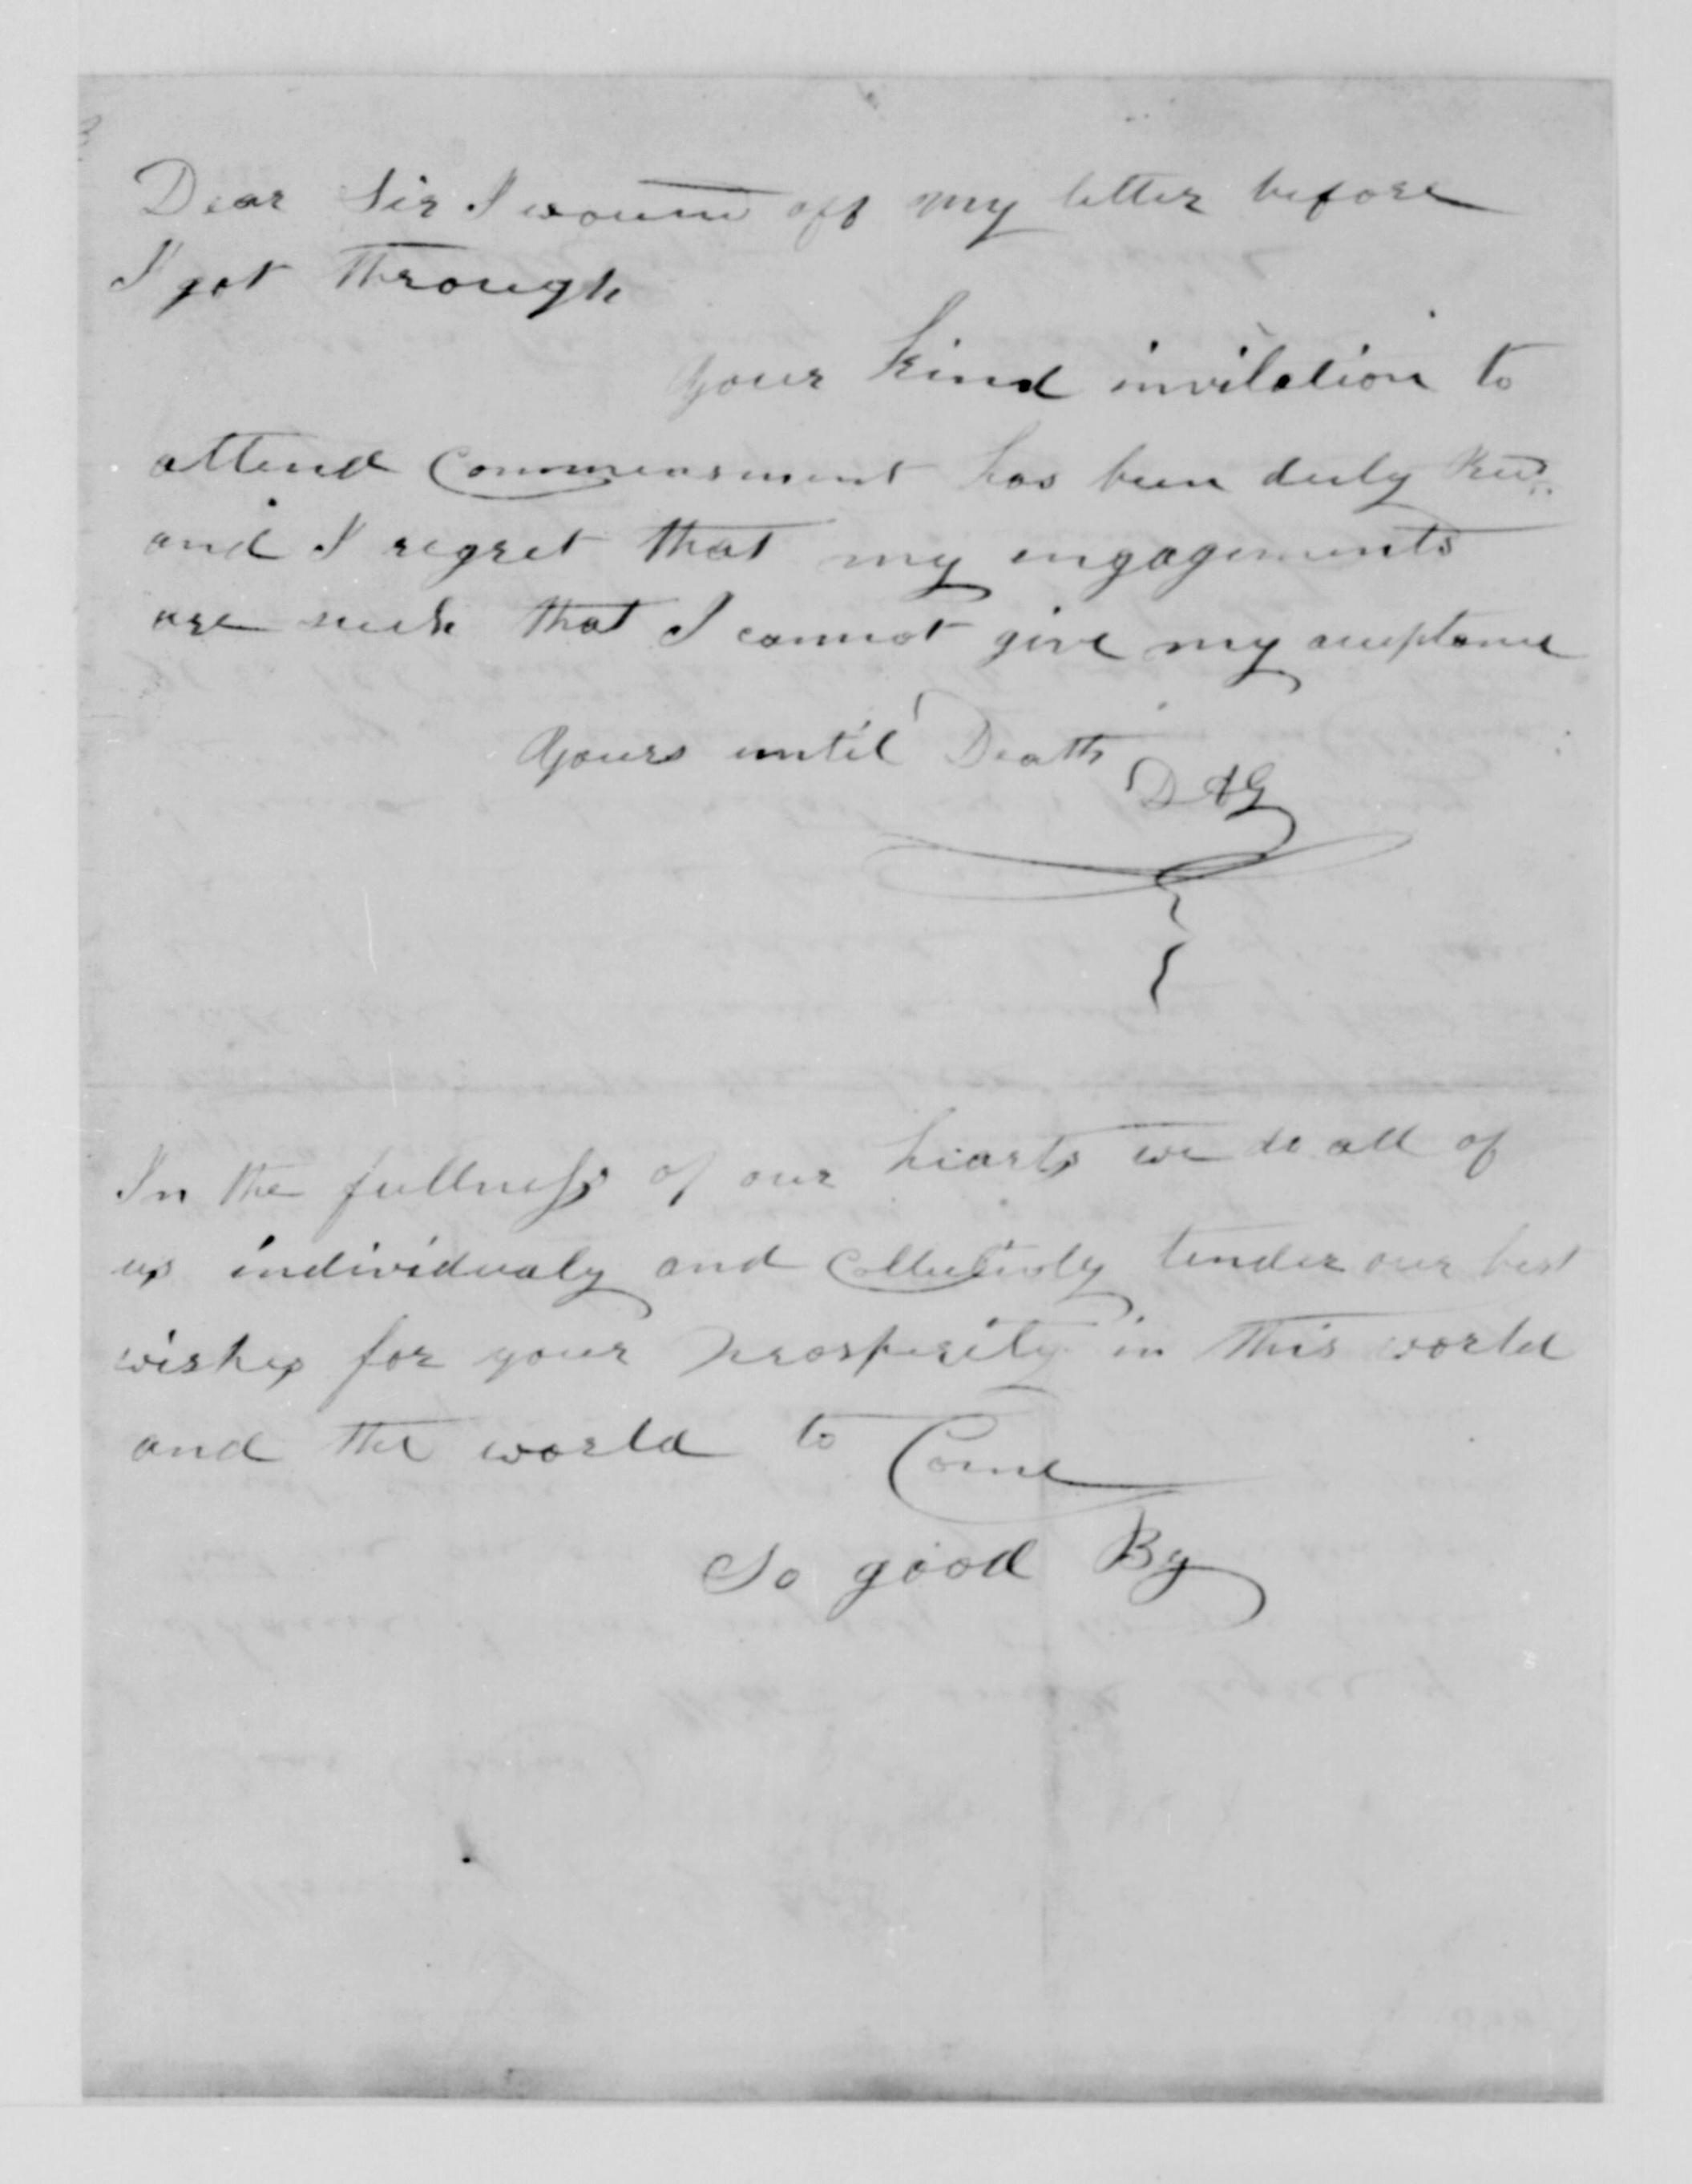 Dear Sir I wound off my letter before
I got through
Your kind invitation to
attend Commensment has been duly Recd.
and I regret that my engagements
are such that I cannot give my acceptance
Yours until Death
D A G
In the fullness of our hearts we do all of
us individualy and Collectively tender our best
wishes for your prosperity in this world
and the world to Come
So good By